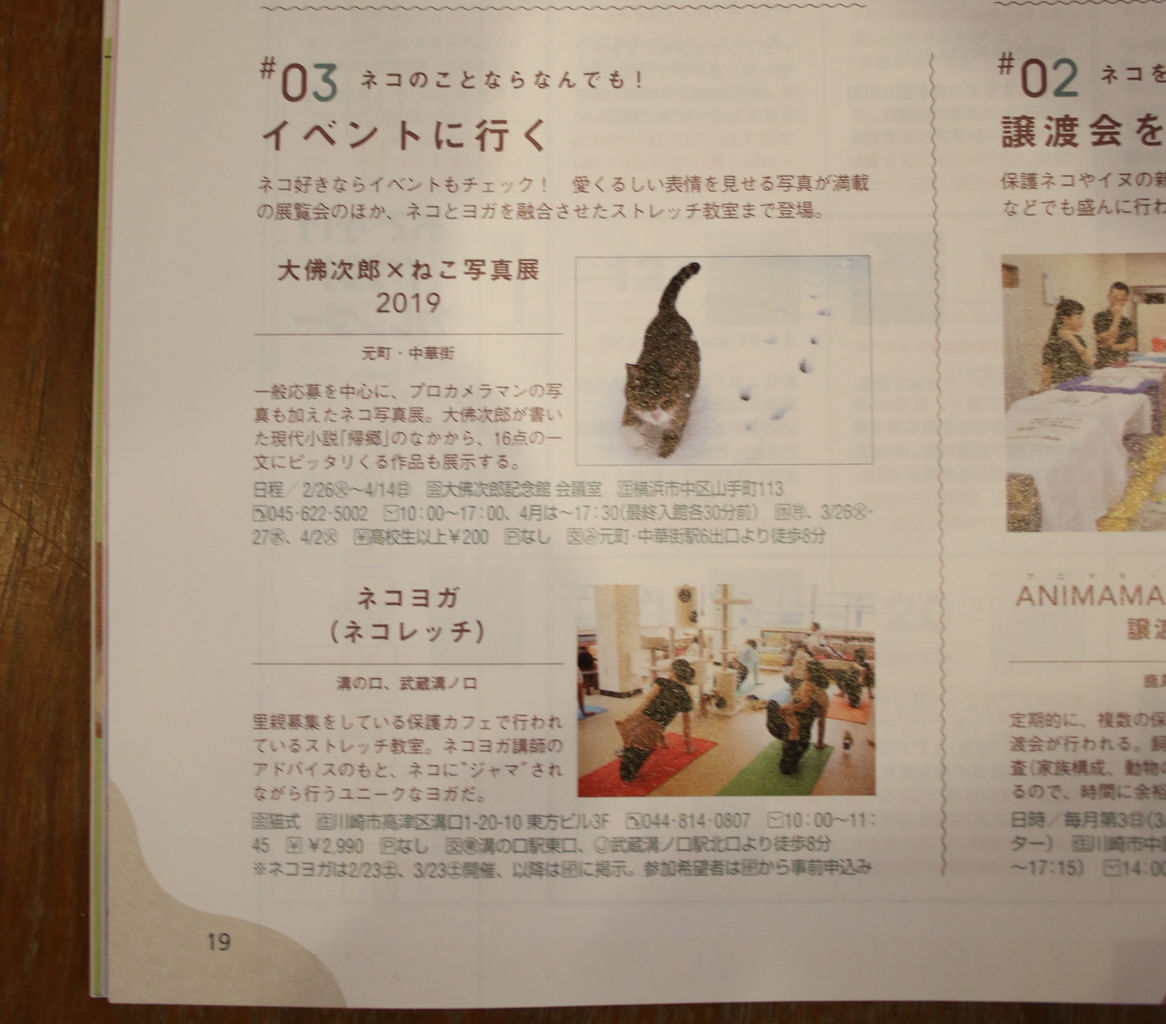 #03 ネコのことならなんでも！
イベントに行く
ネコ好きならイベントもチェック！　愛くるしい表情を見せる写真が満載
の展覧会のほか、ネコとヨガを融合させたストレッチ教室まで登場。
大佛次郎×ねこ写真展
2019
元町・中華街
一般応募を中心に、プロカメラマンの写
真も加えたネコ写真展。大佛次郎が書い
た現代小説「帰郷」のなかから、16点の一
文にピッタリくる作品も展示する。
日程／2/26㊋〜4/14㊐　会大佛次郎記念館 会議室　住横浜市中区山手町113
045-622-5002　10：00〜17：00、4月は〜17：30（最終入館各30分前）　休㊊、3/26㊋・
27㊌、4/2㊋　¥高校生以上￥200　Pなし　交み元町・中華街駅6出口より徒歩8分
ネコヨガ
（ネコレッチ）
溝の口、武蔵溝ノ口
里親募集をしている保護カフェで行われ
ているストレッチ教室。ネコヨガ講師の
アドバイスのもと、ネコに“ジャマ”され
ながら行うユニークなヨガだ。
会猫式　住川崎市高津区溝口1-20-10 東方ビル3F　044-814-0807　10：00〜11：
45　¥￥2,990　Pなし　交東溝の口駅東口、J武蔵溝ノ口駅北口より徒歩8分
※ネコヨガは2/23㊏、3/23㊏開催、以降はHPに掲示。参加希望者はHPから事前申込み
19
#02 ネコを
譲渡会を
保護ネコやイヌの新
などでも盛んに行わ
アニマモー
ANIMAMA
譲渡
定期的に、複数の保
渡会が行われる。飼
査（家族構成、動物の
るので、時間に余裕
日時／毎月第3㊐（3/
ター）　住川崎市中
〜17:15）　14:00